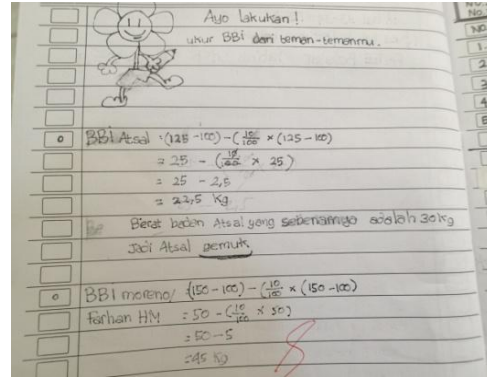 Ayo lakukan!
ukur BBi dari teman-temanmu.
BBi Atsal =(125-100)-(10/100 × (125-100)
= 25 - (10/100 × 25)
= 25 - 2,5
= 22,5 Kg
Berat badan Atsal yang sebenarnya adalah 30kg
Jadi Atsal gemuk
BBI moreno/ (150-100)-(10/100 × (150-100)
Farhan HM = 50-(10/100 × 50)
= 50-5
=45 Kg
No.
NO
1.
2
3
4